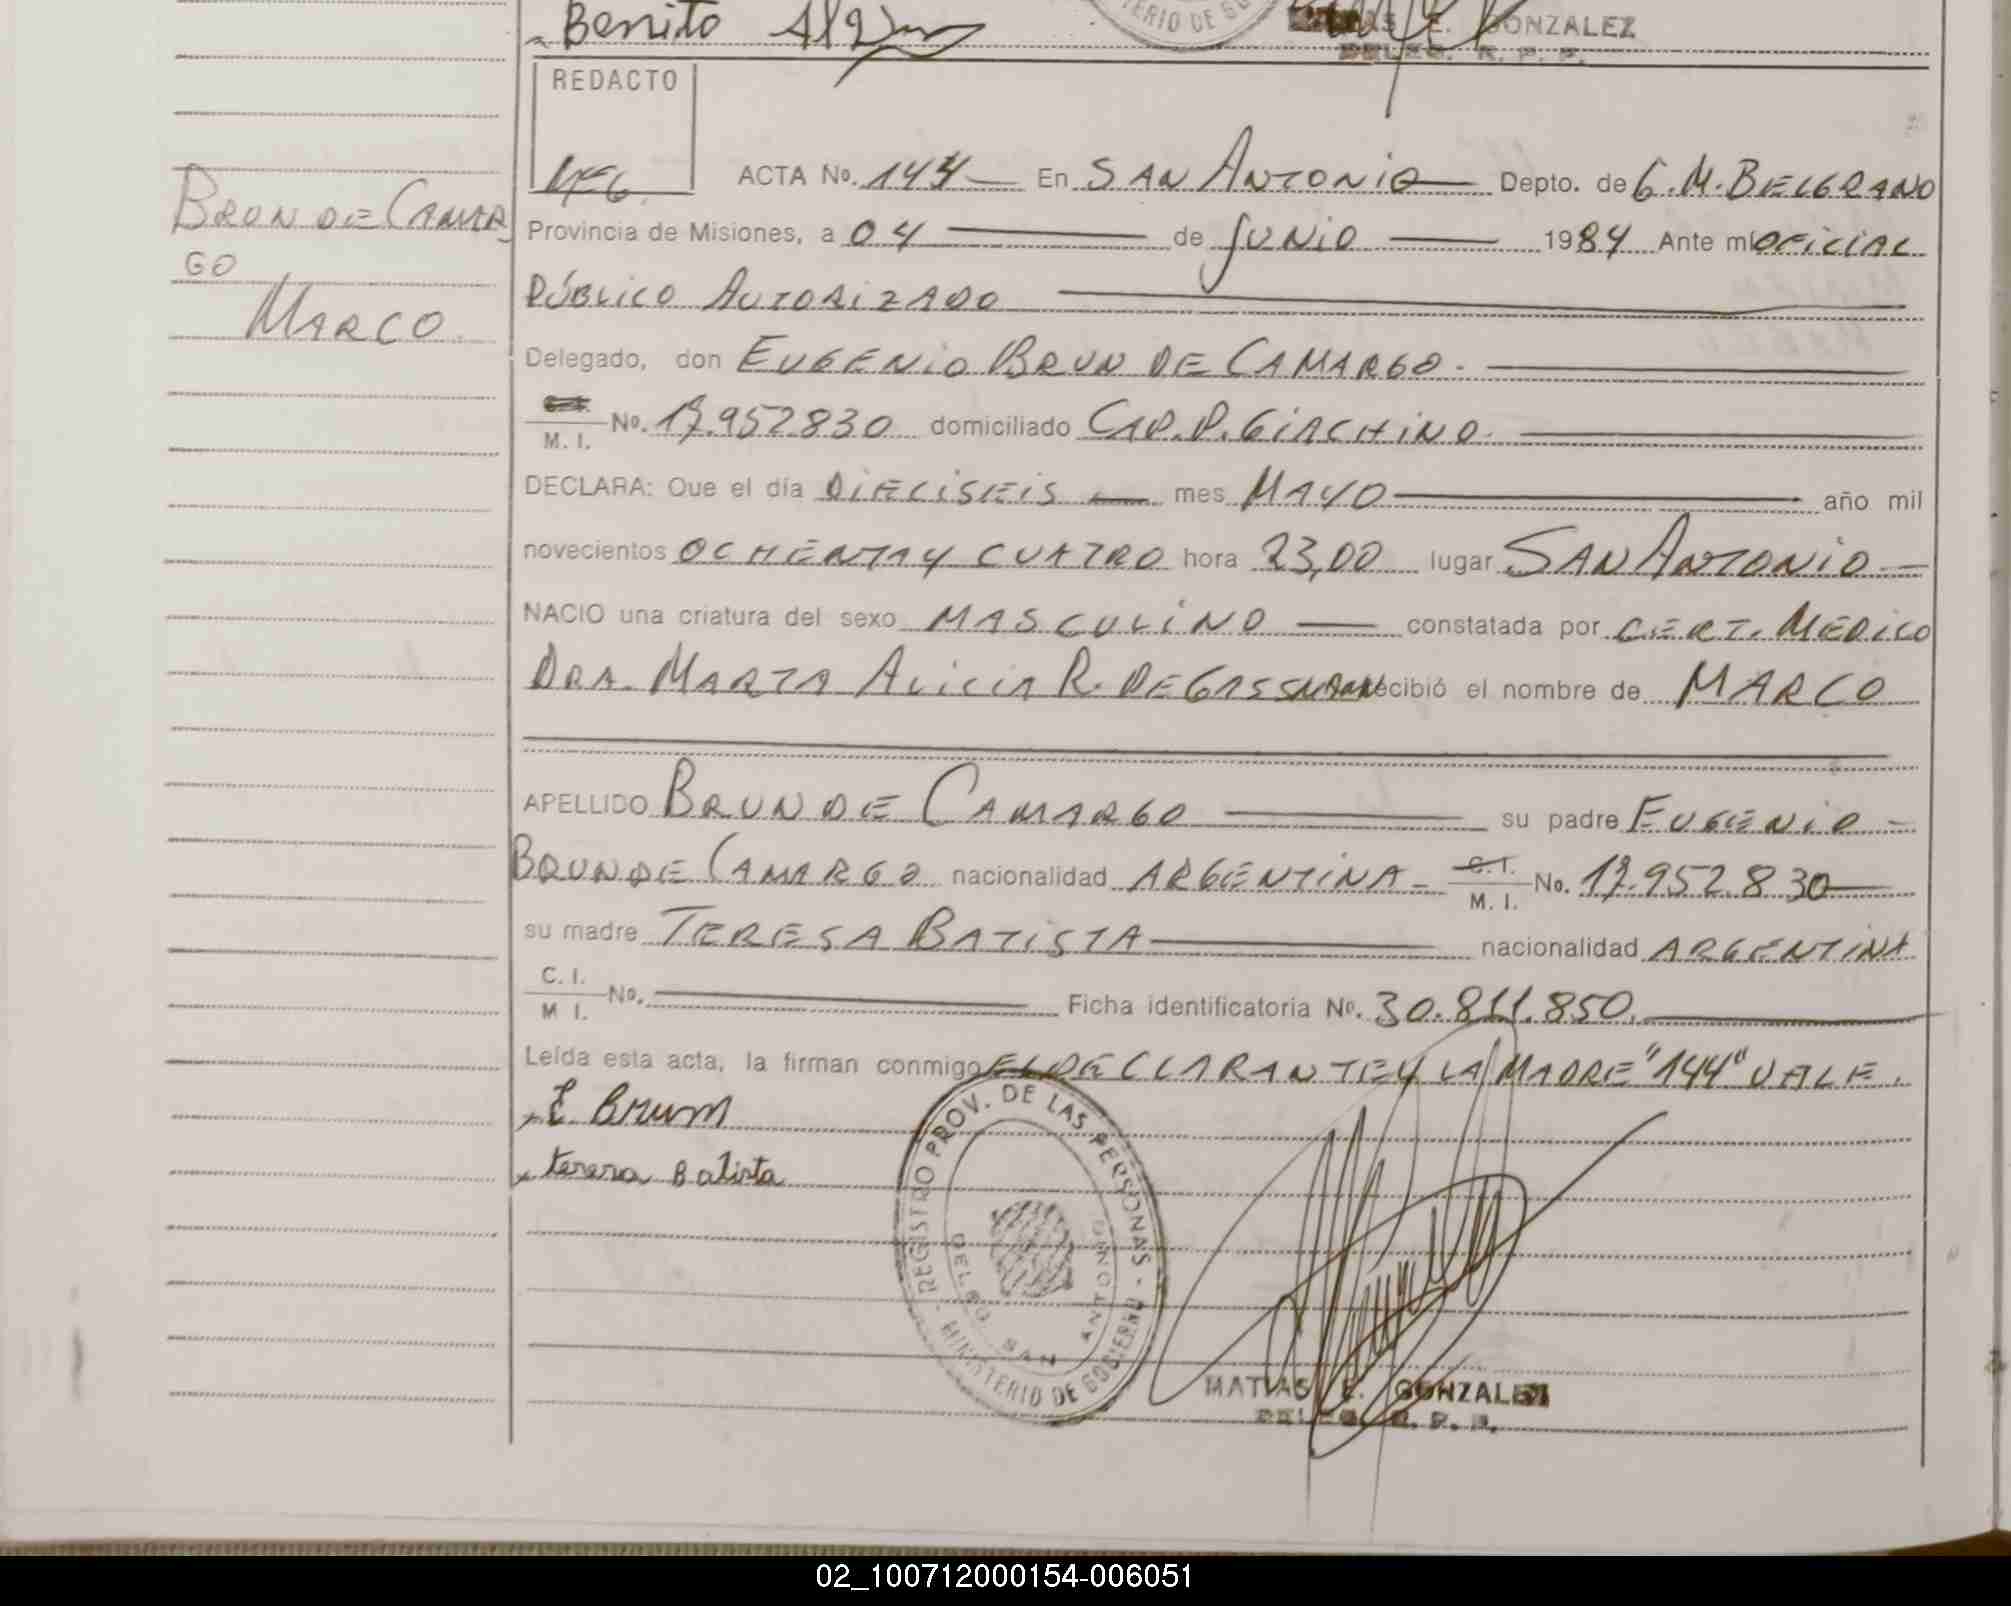 Benito
TERIO DE GO
E. GONZALEZ
DELEG. R. P. P.
REDACTO
ACTA No. 144 En SAN ANTONIO Depto. de G.M. BELGRANO
BRUN DE CAMAR
GO
MARCO
Provincia de Misiones, a 04 de JUNIO 1984 Ante mí OFICIAL
PÚBLICO AUTORIZADO
Delegado, don EUGENIO BRUN DE CAMARGO.
M. I. No. 17.952830 domiciliado CAP. P. GIACHINO.
DECLARA: Que el día DIECISEIS mes MAYO año mil
novecientos OCHENTA Y CUATRO hora 23,00 lugar SAN ANTONIO
NACIO una criatura del sexo MASCULINO constatada por CERT. MEDICO
DRA. MARTA ALICIA R. DE GASSMAN recibió el nombre de MARCO
APELLIDO BRUN DE CAMARGO su padre EUGENIO
BRUN DE CAMARGO nacionalidad ARGENTINA C. I. M. I. No. 17.952.830
su madre TERESA BATISTA nacionalidad ARGENTINA
C. I. M I. No. Ficha identificatoria No. 30.811.850.
Leída esta acta, la firman conmigo EL DECLARANTE Y LA MADRE "144" VALE.
E Brum
teresa Batista
REGISTRO PROV. DE LAS PERSONAS - MINISTERIO DE GOBIERNO -
DELEG. SAN ANTONIO
MATIAS E. GONZALEZ
DELEG. R. P. P.
02_100712000154-006051